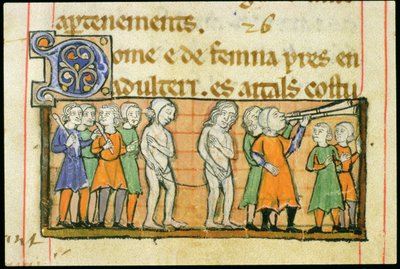 aptenements. 26
Dome e de femna pres en
adulteri. es aitals costu